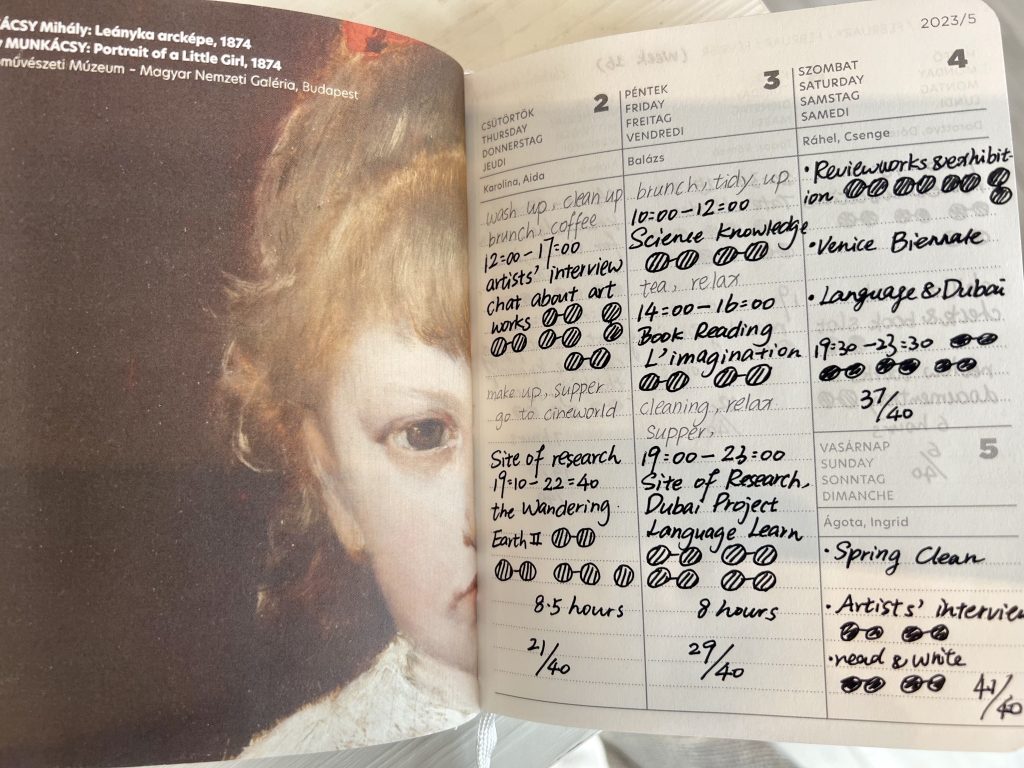 ÁCSY Mihály: Leányka arcképe, 1874
MUNKÁCSY: Portrait of a Little Girl, 1874
művészeti Múzeum – Magyar Nemzeti Galéria, Budapest
2023/5
2
CSÜTÖRTÖK
THURSDAY
DONNERSTAG
JEUDI
Karolina, Aida
wash up, clean up
brunch, coffee
12:00-17:00
artists' interview
chat about art
works
make up, supper
go to cineworld
Site of research
19:10-22:40
the Wandering
Earth II
8.5 hours
21/40
3
PÉNTEK
FRIDAY
FREITAG
VENDREDI
Balázs
brunch, tidy up
10:00-12:00
Science knowledge
tea, relax
14:00-16:00
Book Reading
L'imagination
cleaning, relax
supper,
19:00-23:00
Site of Research,
Dubai Project
Language Learn
8 hours
29/40
4
SZOMBAT
SATURDAY
SAMSTAG
SAMEDI
Ráhel, Csenge
• Review works & exhibit-
ion
• Venice Biennale
• Language & Dubai
19:30-23:30
37/40
5
VASÁRNAP
SUNDAY
SONNTAG
DIMANCHE
Ágota, Ingrid
• Spring Clean
• Artists' interview
• read & write
41/40